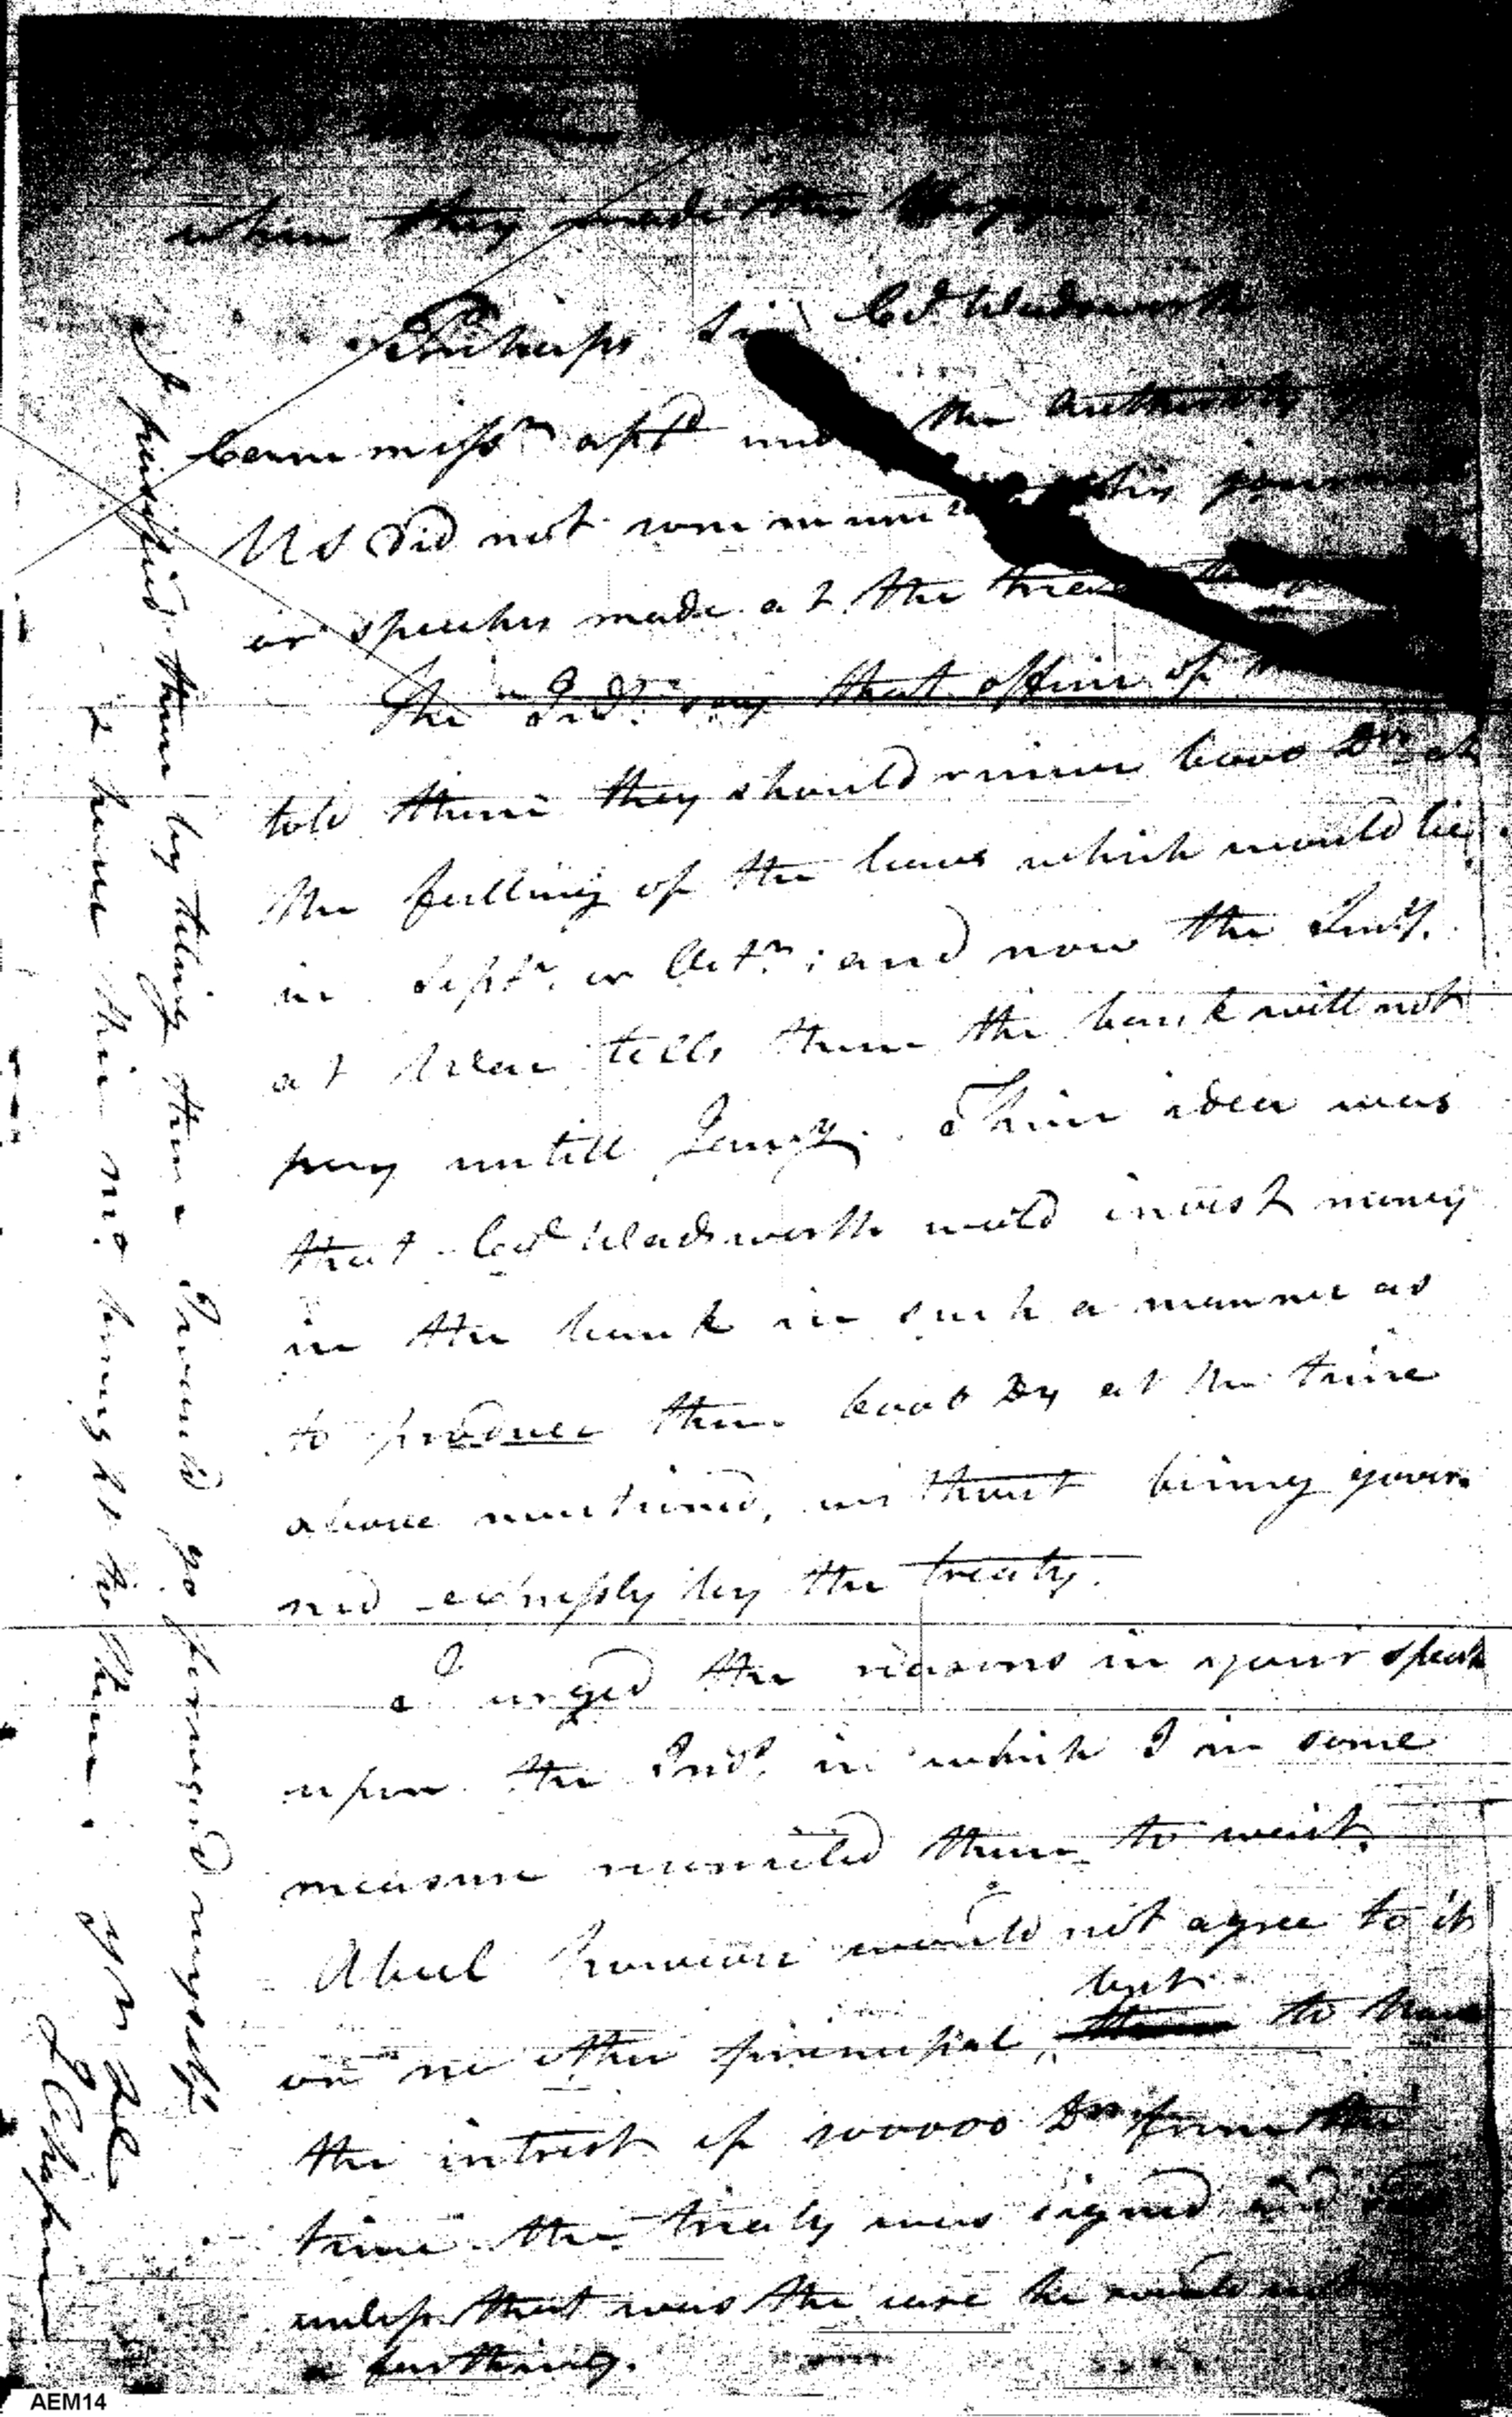 when they made the
Perhaps Sir Col. Wadsworth
Commissr. aptd. the authority
US did not his journal
or speeches made at the
The Inds. say that officer of
told them they should receive 6000 Drs. at
the falling of the leaves which would be
in Septr. or Octr.; and now the
at tells them the bank will not
pay untill Jany. Their idea was
that Col. Wadsworth would invest money
in the bank in such a manner as
to produce them 6000 Ds at the time
above mentioned, without being gover-
ned expressly by the treaty.
I urged the reasons in your speech
upon the Inds. in which I in some
measure reconciled them to wait.
Abeel however would not agree to it
on no other principal, but to have
the intrest of 100000 Drs. from the
time the treaty was signed and
unless that was the case he would not
a farthing.
I pacified them by telling them I would go forward myself
& have this mo. brought to them.
J Chapin
AEM14